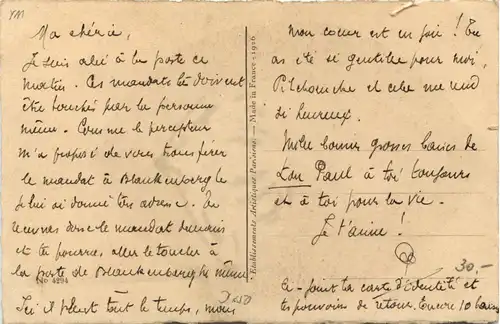 YM
Ma chérie,
Je suis allé à la poste ce
matin. Ces mandats là doivent
être touchés par la personne
même. Comme le percepteur
m'a proposé de vous transférer
le mandat à Blankenberghe
je lui ai donné ton adresse. Tu
recevras donc le mandat demain
et tu pourras aller le toucher à
la poste de Blankenberghe même
No 4294
Ici il pleut tout le temps, mais
• Etablissements Artistiques Parisiens — Made in France - 1926
mon coeur est en joie ! Tu
as été si gentille pour moi,
et cela me rend
si heureux.
Mille bonnes grosses baises de
Ton Paul à toi toujours
et à toi pour la vie.
Je t'aime !
P
30.-
Ci-joint ta carte d'identité et
tes pouvoirs de retour. Encore 10